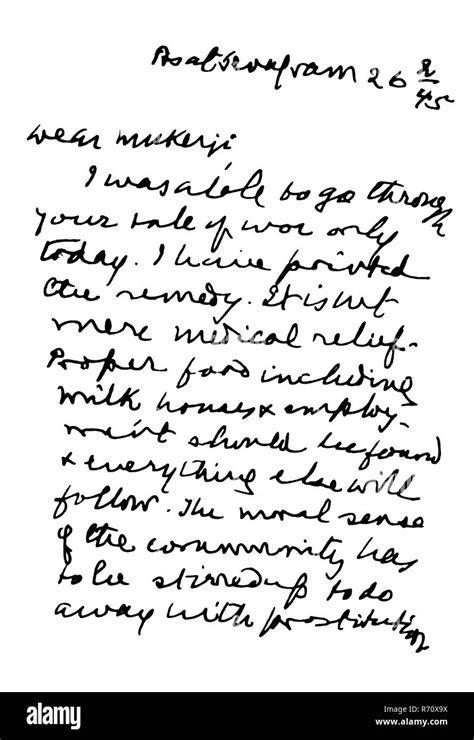 As at Sevagram 26 2/45
Dear Mukerji,
I was able to go through
your tale of woe only
today. I have printed
the remedy. It is not
mere medical relief.
Proper food including
milk houses & employ-
ment should be found
& everything else will
follow. The moral sense
of the community has
to be stirred up to do
away with prostitution
alamy
Image ID: R70X9X
www.alamy.com